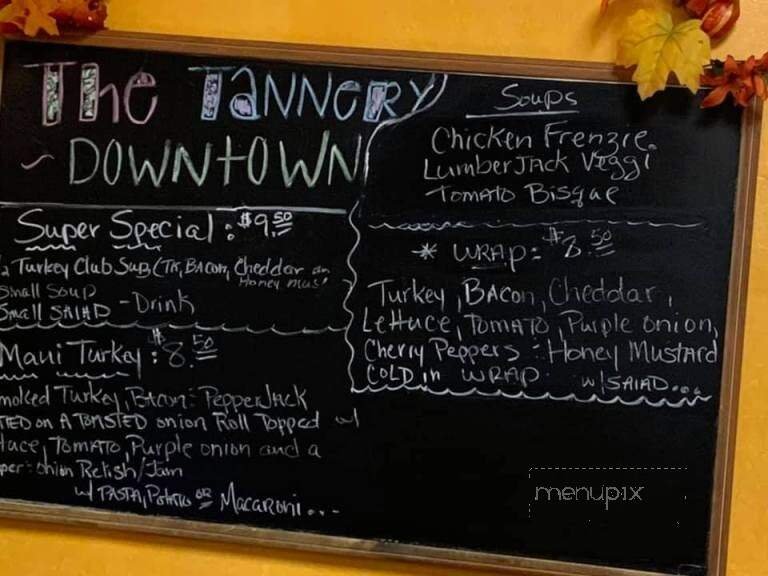 The TANNERY
~ DOWNTOWN
Super Special: $9.50
1/2 Turkey Club Sub (TK, BACON, Cheddar an
Honey mus'
Small Soup
Small SALAD - Drink
Maui Turkey: $8.50
moked Turkey, Bacon: PepperJack
TED on A TOASTED onion Roll Topped w/
tuce, TOMATO, Purple onion and a
per: onion Relish/Jam
w/ PASTA, POTATO or Macaroni...-
Soups
Chicken Frenzie.
LumberJack Veggi
TOMATO Bisque
* WRAP: $8.50
Turkey, BACON, Cheddar,
Lettuce, TOMATO, Purple onion,
Cherry Peppers: Honey Mustard
COLD in WRAP. w/ SALAD...
menupix